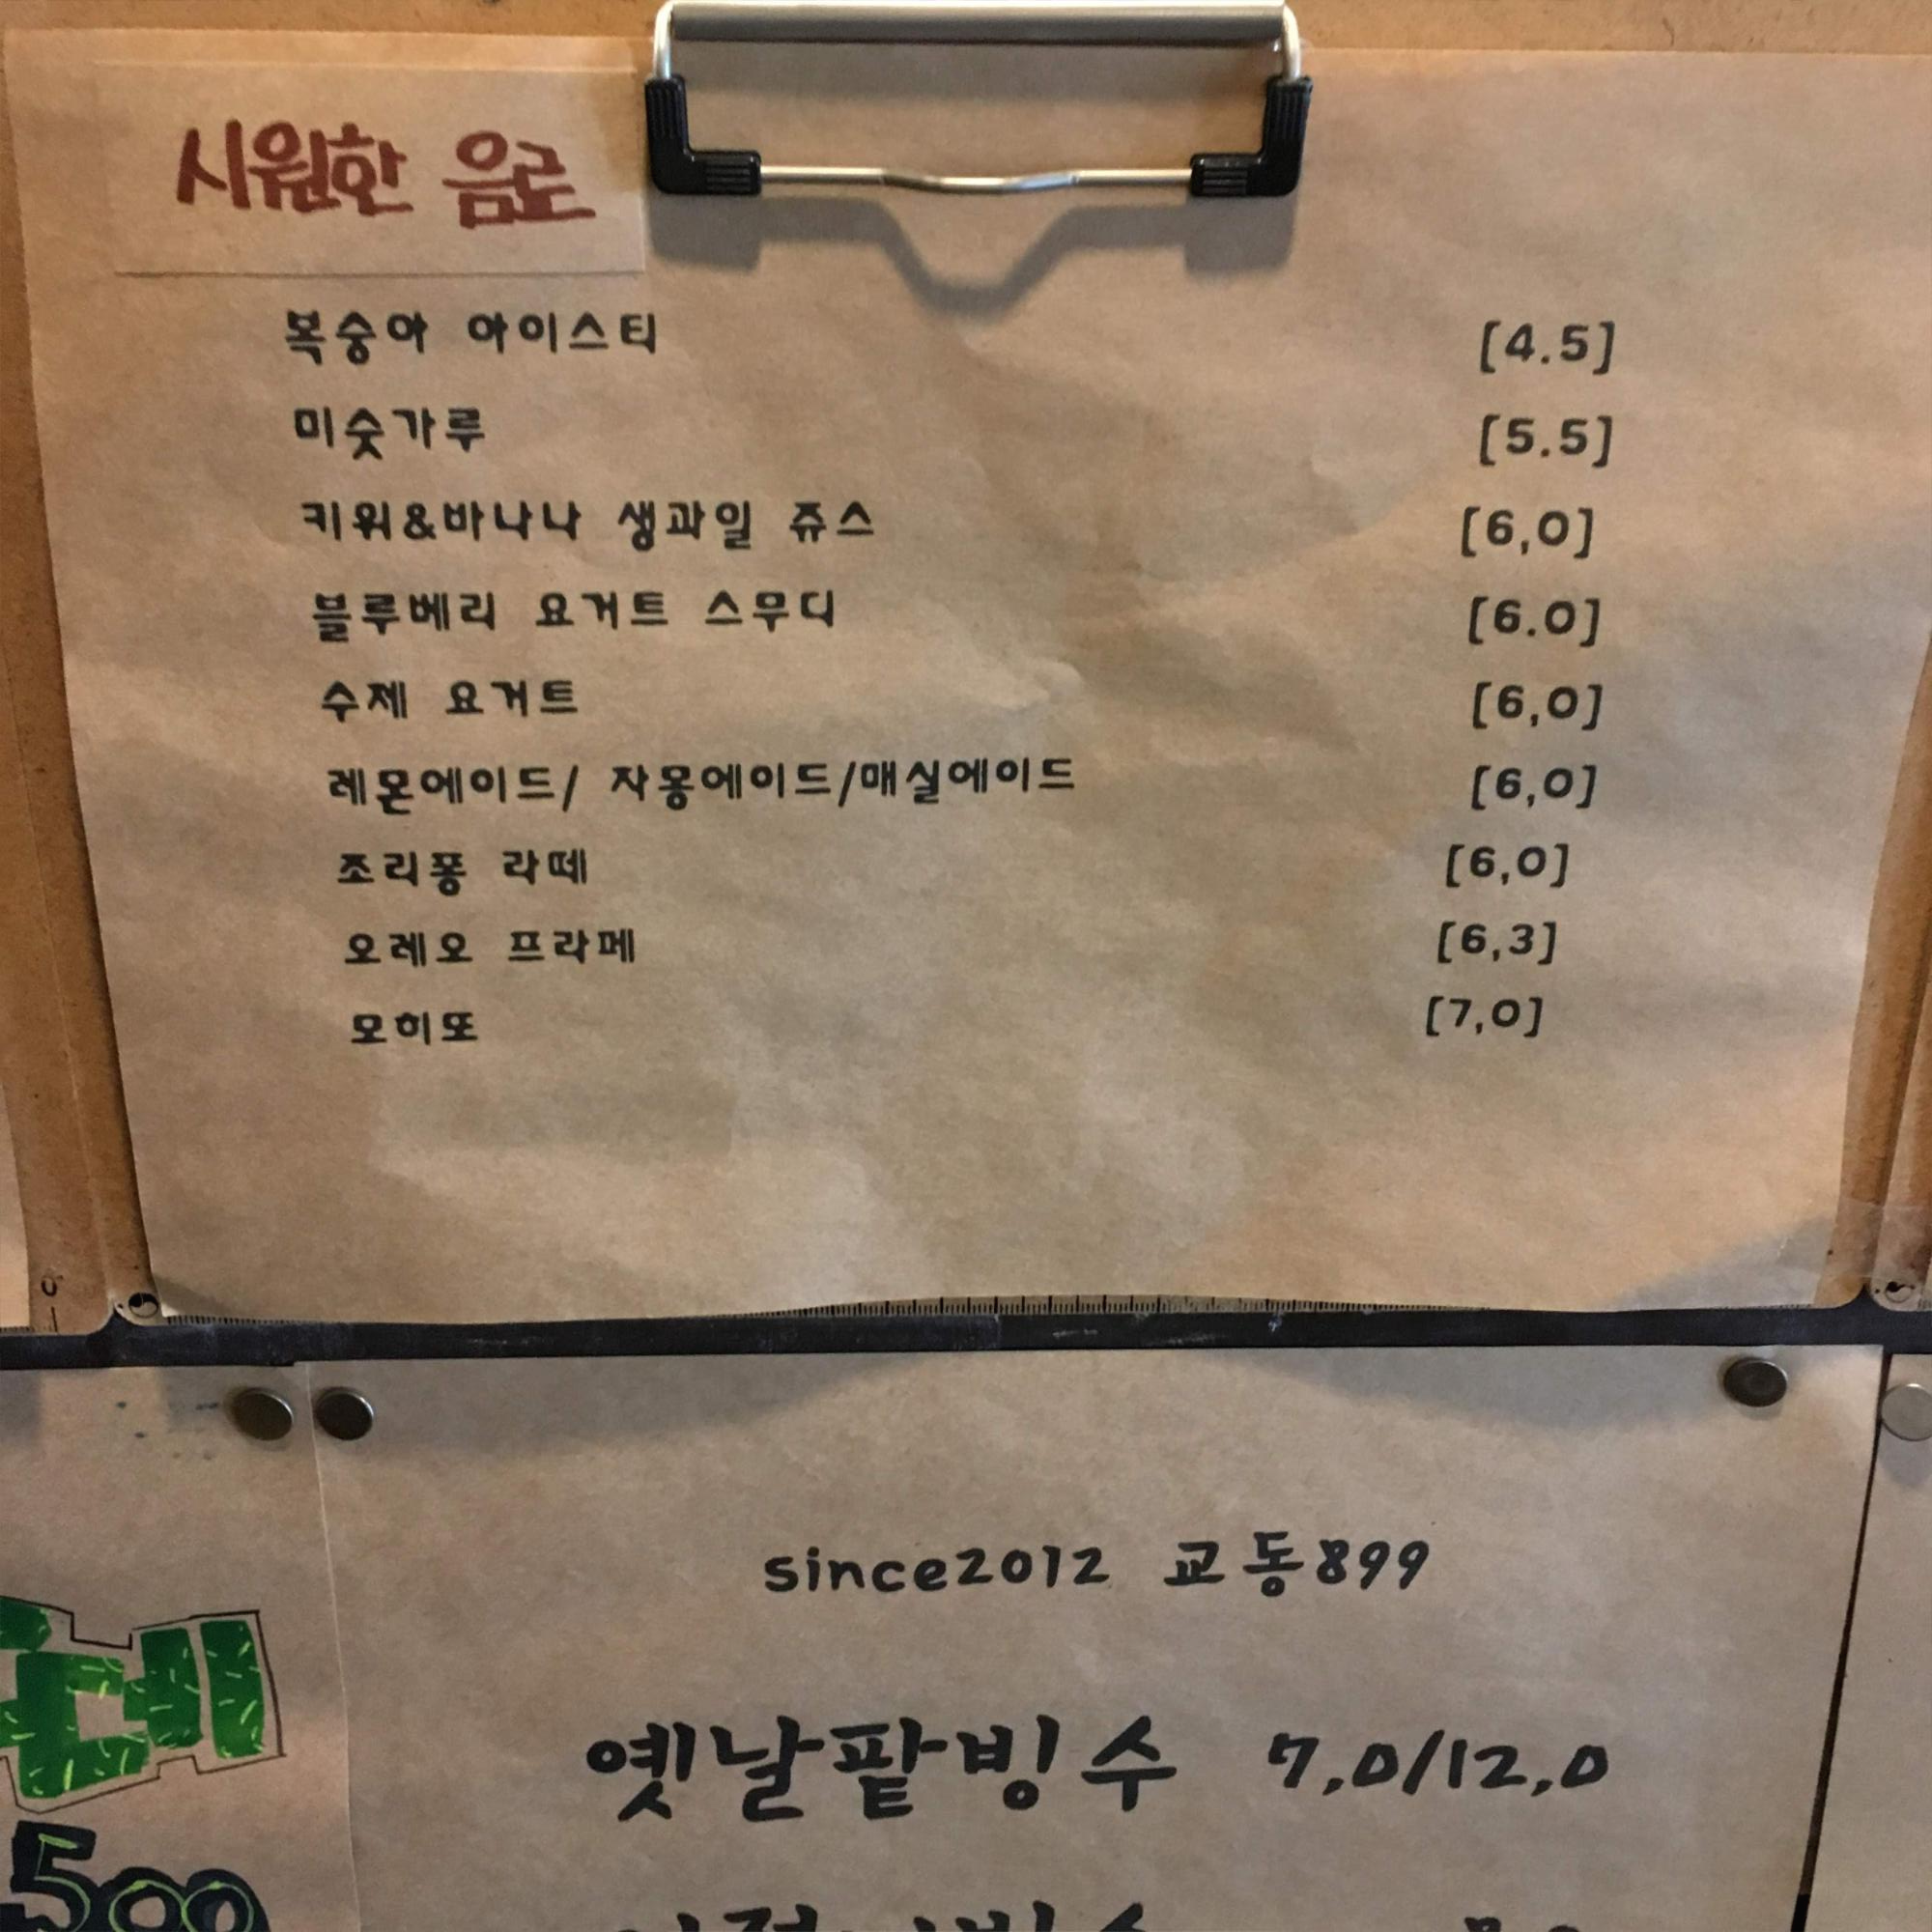 시원한 음료
복숭아 아이스티 [4.5]
미숫가루 [5.5]
키위&바나나 생과일 쥬스 [6,0]
블루베리 요거트 스무디 [6.0]
수제 요거트 [6,0]
레몬에이드/ 자몽에이드/매실에이드 [6,0]
조리퐁 라떼 [6,0]
오레오 프라페 [6,3]
모히또 [7,0]
since2012 교동899
옛날팥빙수 7,0/12,0
500